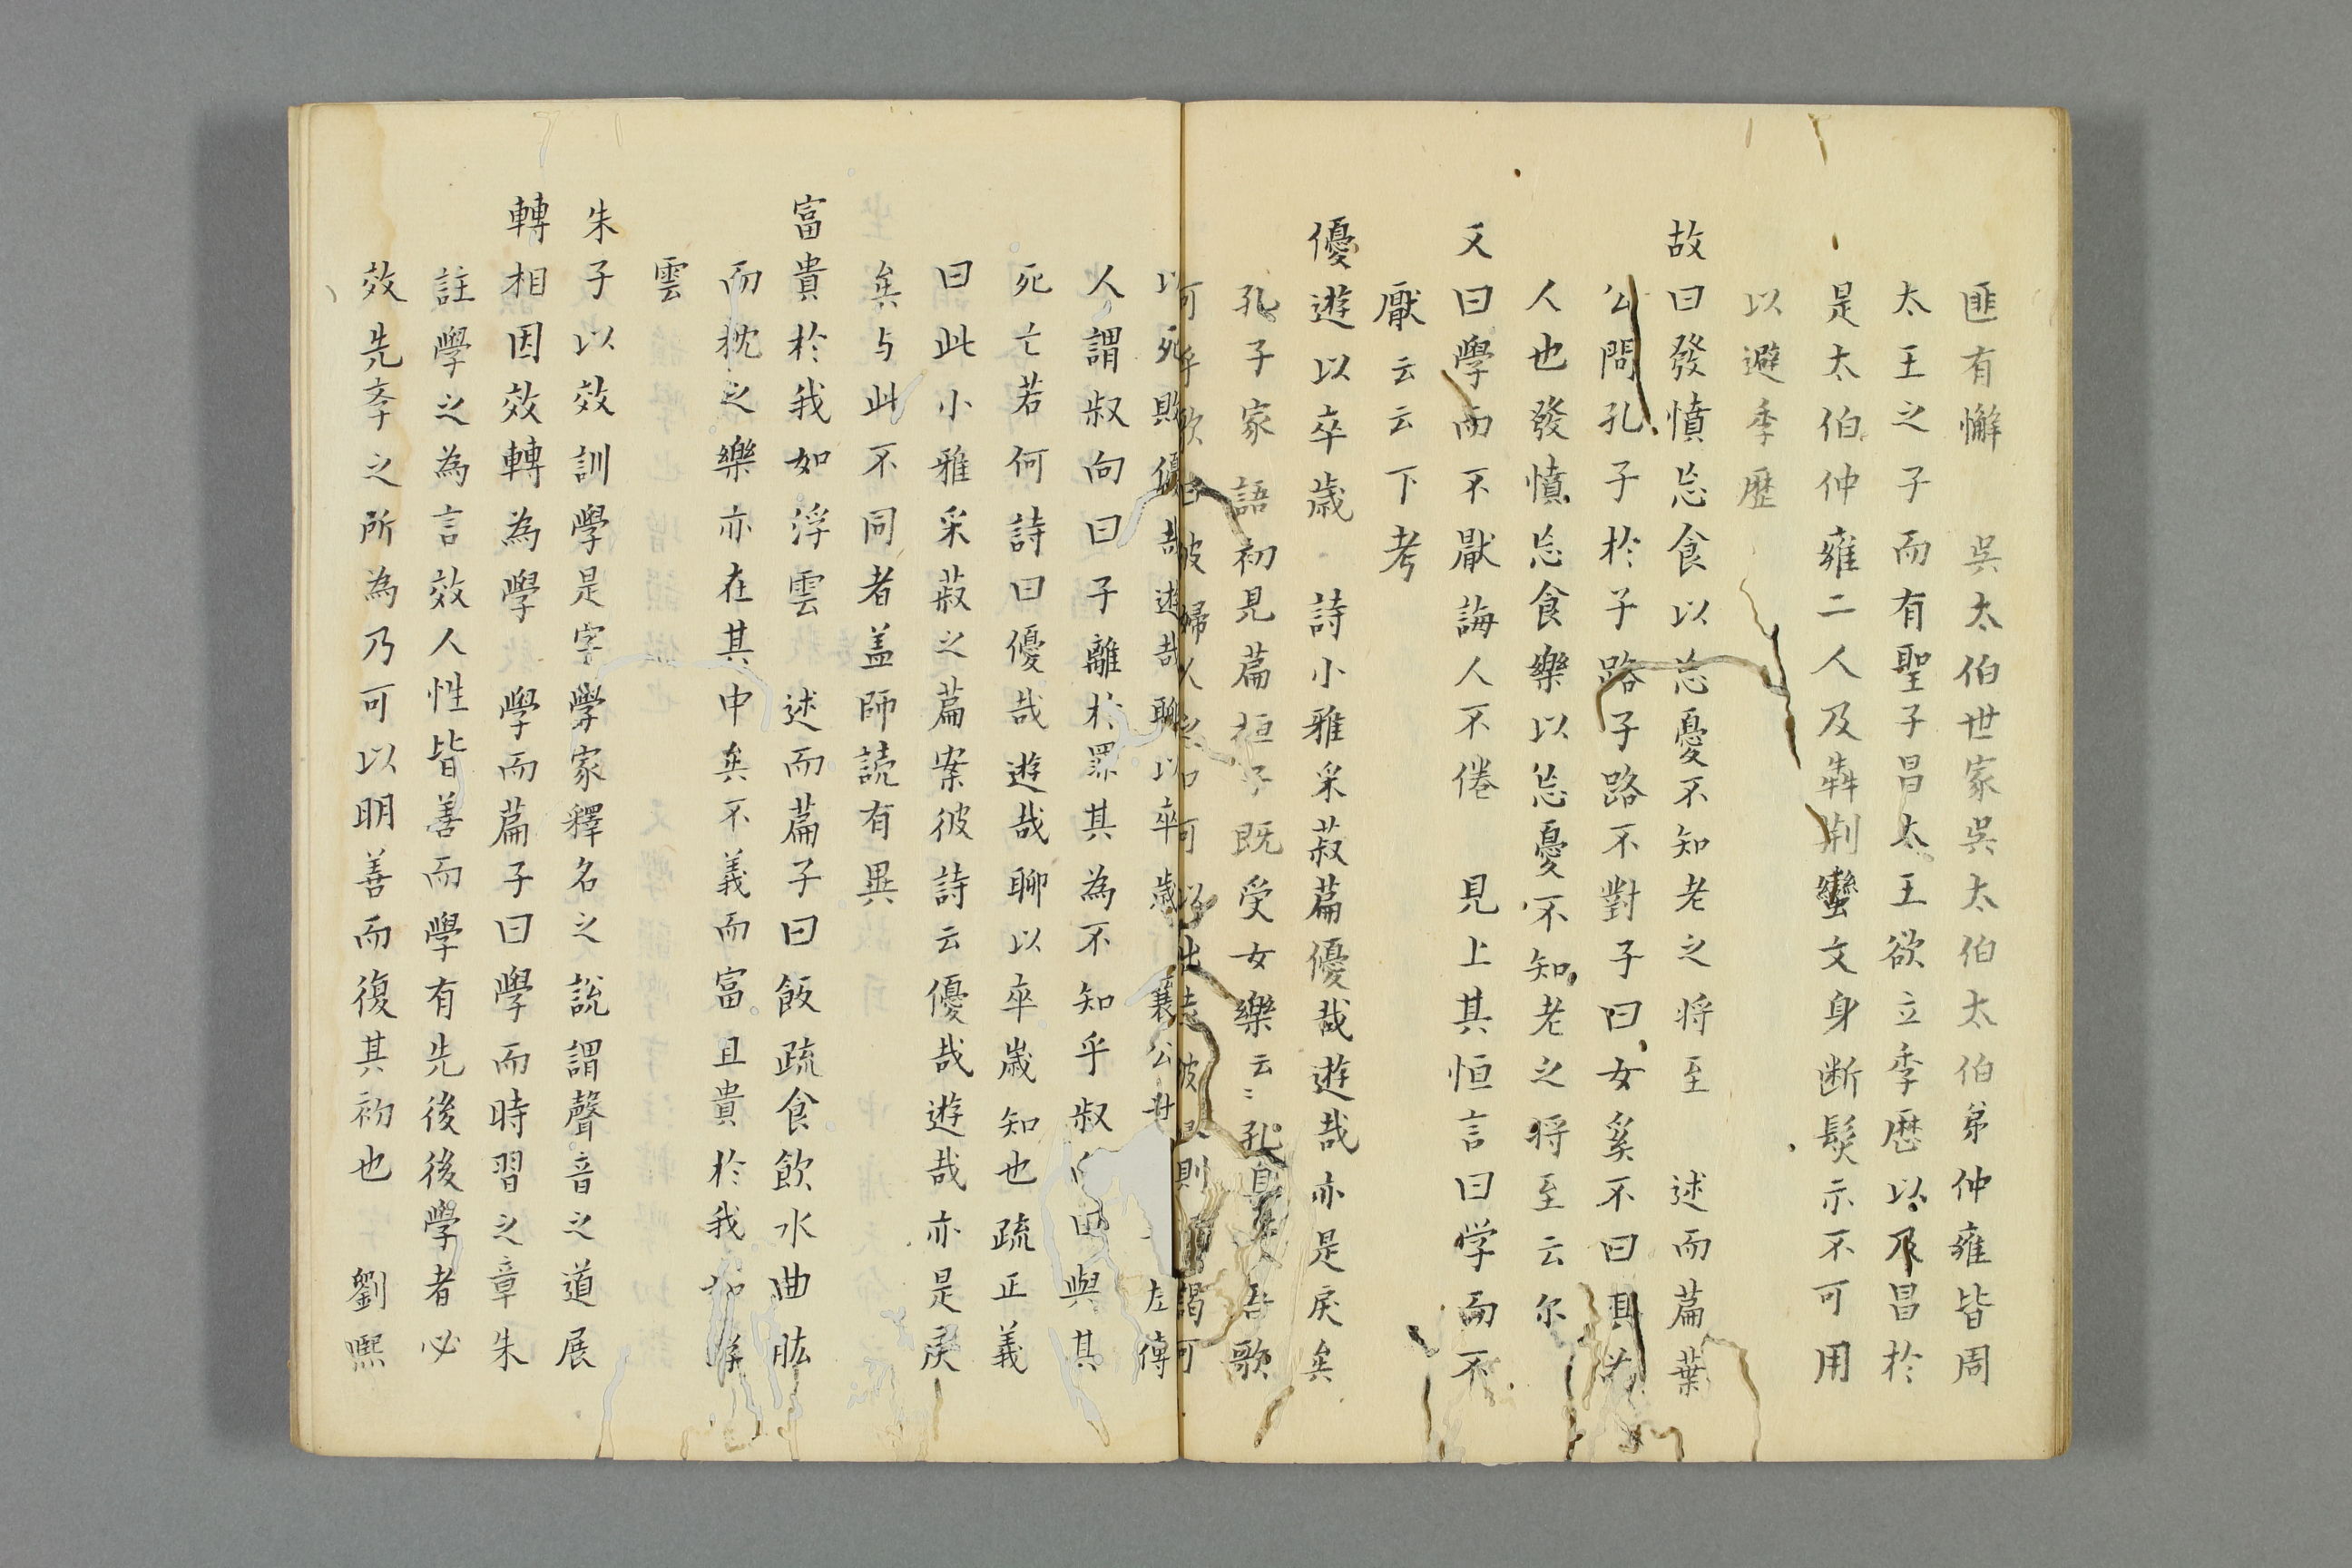 匪有懈　吳太伯世家吳太伯太伯弟仲雍皆周
太王之子而有聖子昌太王欲立季歷以及昌於
是太伯仲雍二人乃犇荆蠻文身断髮示不可用
以避季歷
故曰發憤忘食以忘憂不知老之将至　述而篇葉
公問孔子於子路子路不對子曰女奚不曰其為
人也發憤忘食樂以忘憂不知老之将至云尔
又曰學而不厭誨人不倦　見上其恒言曰学而不
厭云云下考
優遊以卒歳　詩小雅采菽篇優哉遊哉亦是戻矣
孔子家語初見篇桓子既受女樂云〻孔子吾歌
可乎歌曰彼婦人之口可以出走彼婦人之謁可
以死敗優哉遊哉聊以卒歳　襄公廿左傳
人謂叔向曰子離於罪其為不知乎叔向曰與其
死亡若何詩曰優哉遊哉聊以卒歳知也疏正義
曰此小雅采菽之篇案彼詩云優哉遊哉亦是戻
矣与此不同者盖師読有異
富貴於我如浮雲　述而篇子曰飯疏食飲水曲肱
而枕之樂亦在其中矣不義而富且貴於我如浮
雲
朱子以效訓學是字學家釋名之說謂聲音之道展
轉相因效轉為學　學而篇子曰學而時習之章朱
註學之為言效人性皆善而學有先後後學者必
效先斈之所為乃可以明善而復其初也　劉熈